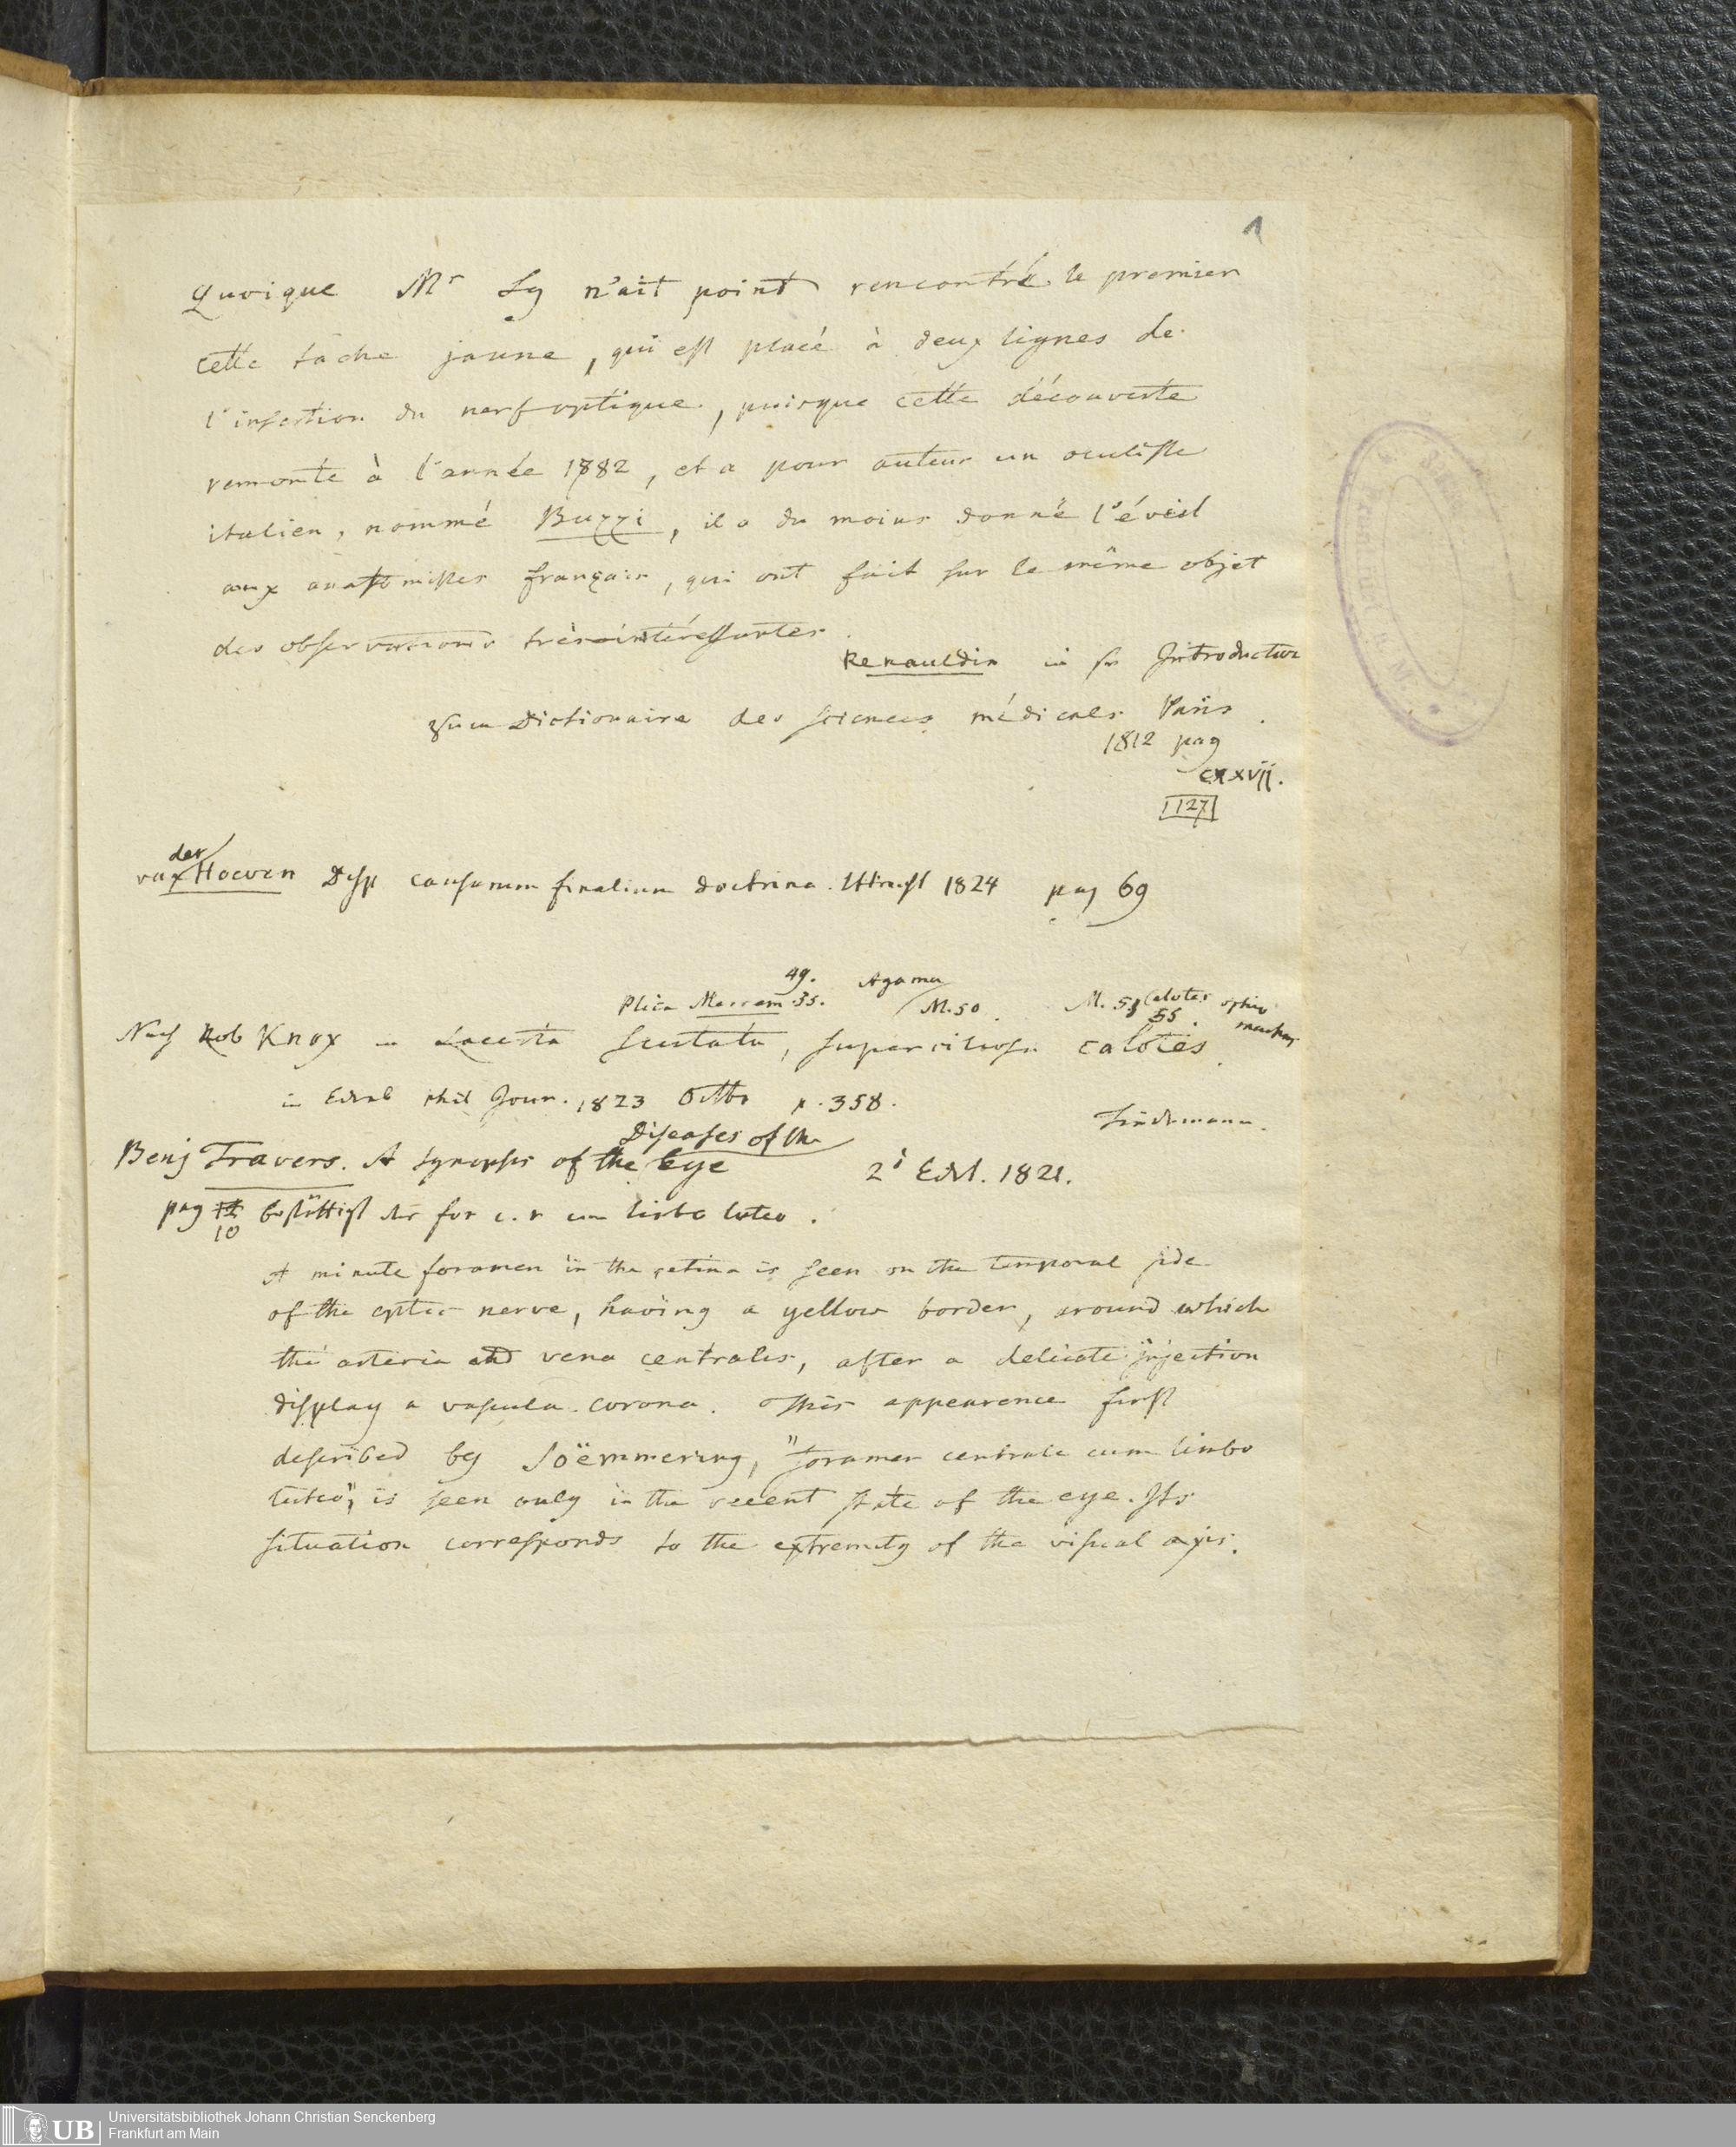 1
Quoique Mr Sg n'ait point rencontré le premier
cette tache jaune, qui est placé à deux lignes de
l'insertion du nerf optique, puisque cette découverte
remonte à l'année 1782, et a pour auteur un oculiste
italien, nommé Buzzi, il a du moins donné l'éveil
aux anatomistes français, qui ont fait sur le même objet
des observations très intéressantes.
Renauldin in sr Introduction
zum Dictionaire des sciences médicales Paris.
1812 pag
cxxvij.
127
van der Hoeven Dissp causarum finalium doctrina. Utrecht 1824 pag 69
49. Agama
Plica Merrem 35. M. 50. M. 51 Calotes ophio
55. machus
Nach Rob Knox in Lacerta scutata, superciliosa calotes.
in Edinb phil Jour. 1823 Octbr p. 358.
Tiedemann.
Diseases of the
Benj Travers. A synopsis of the Eye 2d Edit. 1821.
pag 10 bestättigt das for c. r cum limbo luteo.
A minute foramen in the retina is seen on the temporal side
of the optic nerve, having a yellow border, around which
the arteria and vena centralis, after a delicate injection
display a vascula. corona. This appearence first
described by Soëmmering, "foramen centrale cum limbo
luteo", is seen only in the recent state of the eye. Its
situation corresponds to the extremity of the visual axis.
UB
Universitätsbibliothek Johann Christian Senckenberg
Frankfurt am Main